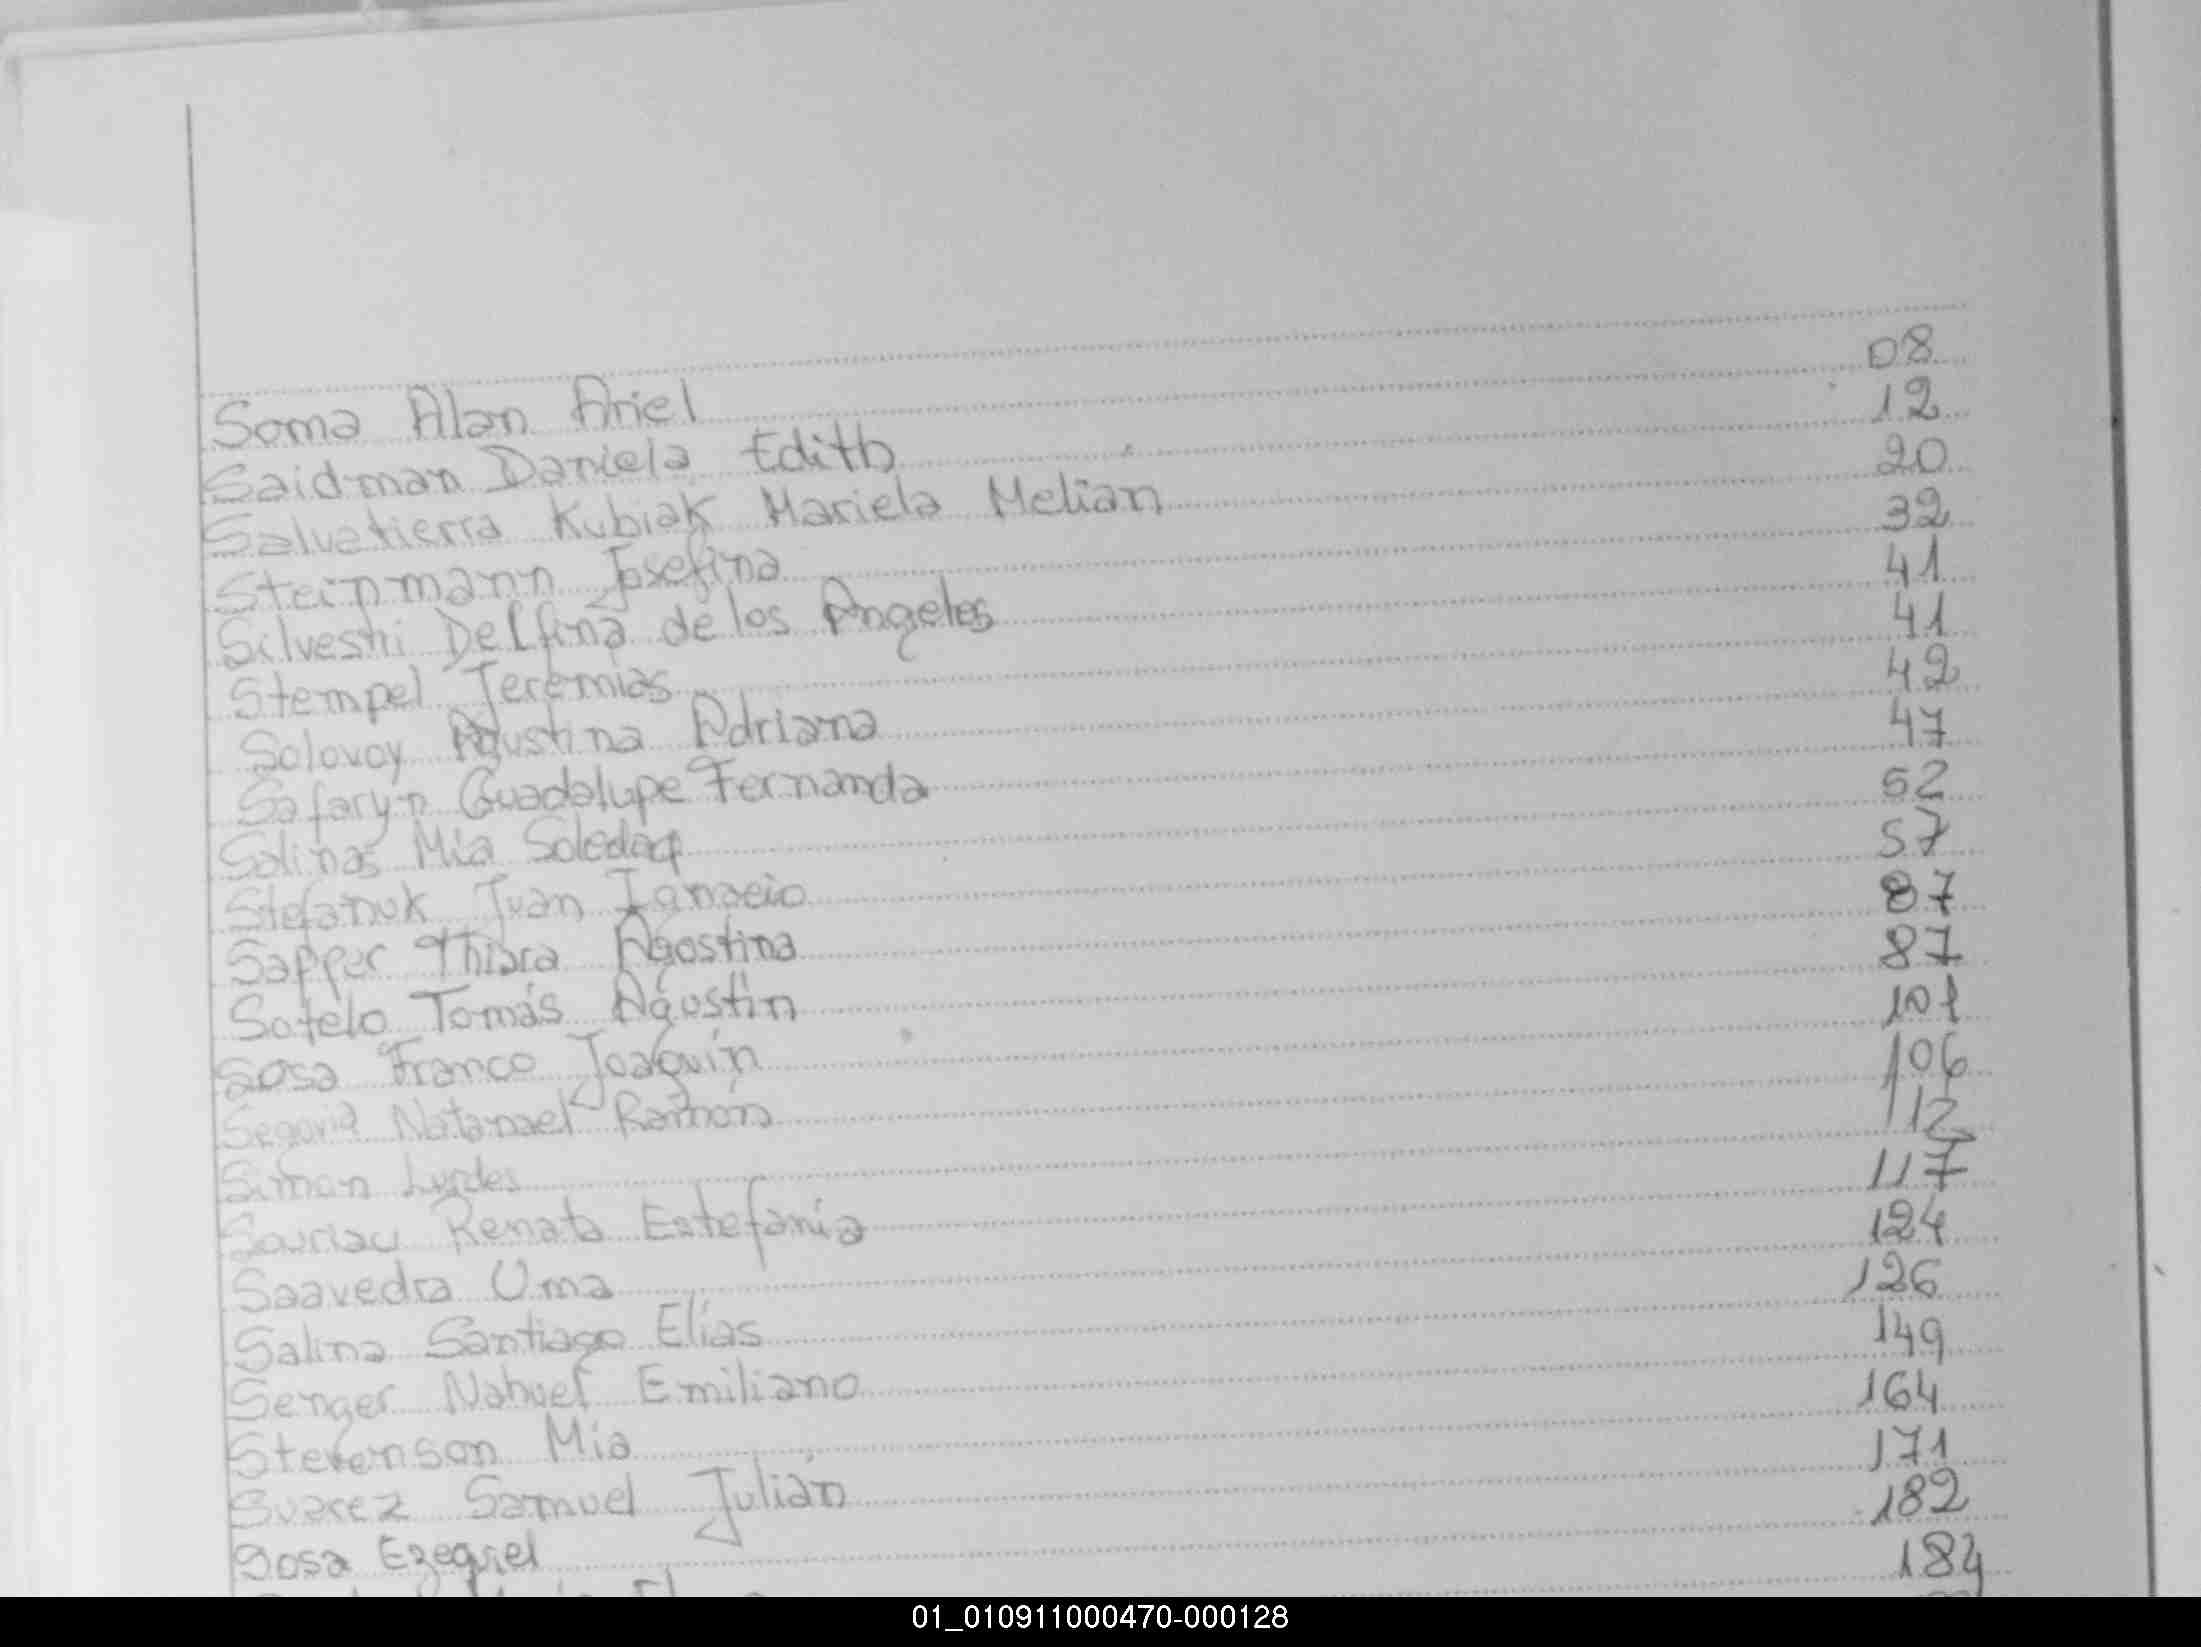 Soma Alan Ariel 08
Saidman Daniela Edith 12
Salvatierra Kubiak Mariela Melian 20
Steinmann Josefina 32
Silvestri Delfina de los Angeles 41
Stempel Jeremias 41
Solovoy Agustina Adriana 42
Safaryn Guadalupe Fernanda 47
Salinas Mia Soledad 52
Stefanuk Juan Ignacio 57
Sapper Thiara Agostina 87
Sotelo Tomás Agustin 87
Sosa Franco Joaquín 101
Segovia Natanael Ramón 106
Simon Lurdes 112
Souriau Renata Estefania 117
Saavedra Uma 124
Salina Santiago Elias 126
Senger Nahuel Emiliano 149
Stevenson Mia 164
Suarez Samuel Julián 171
Sosa Ezequiel 182
184
01_010911000470-000128